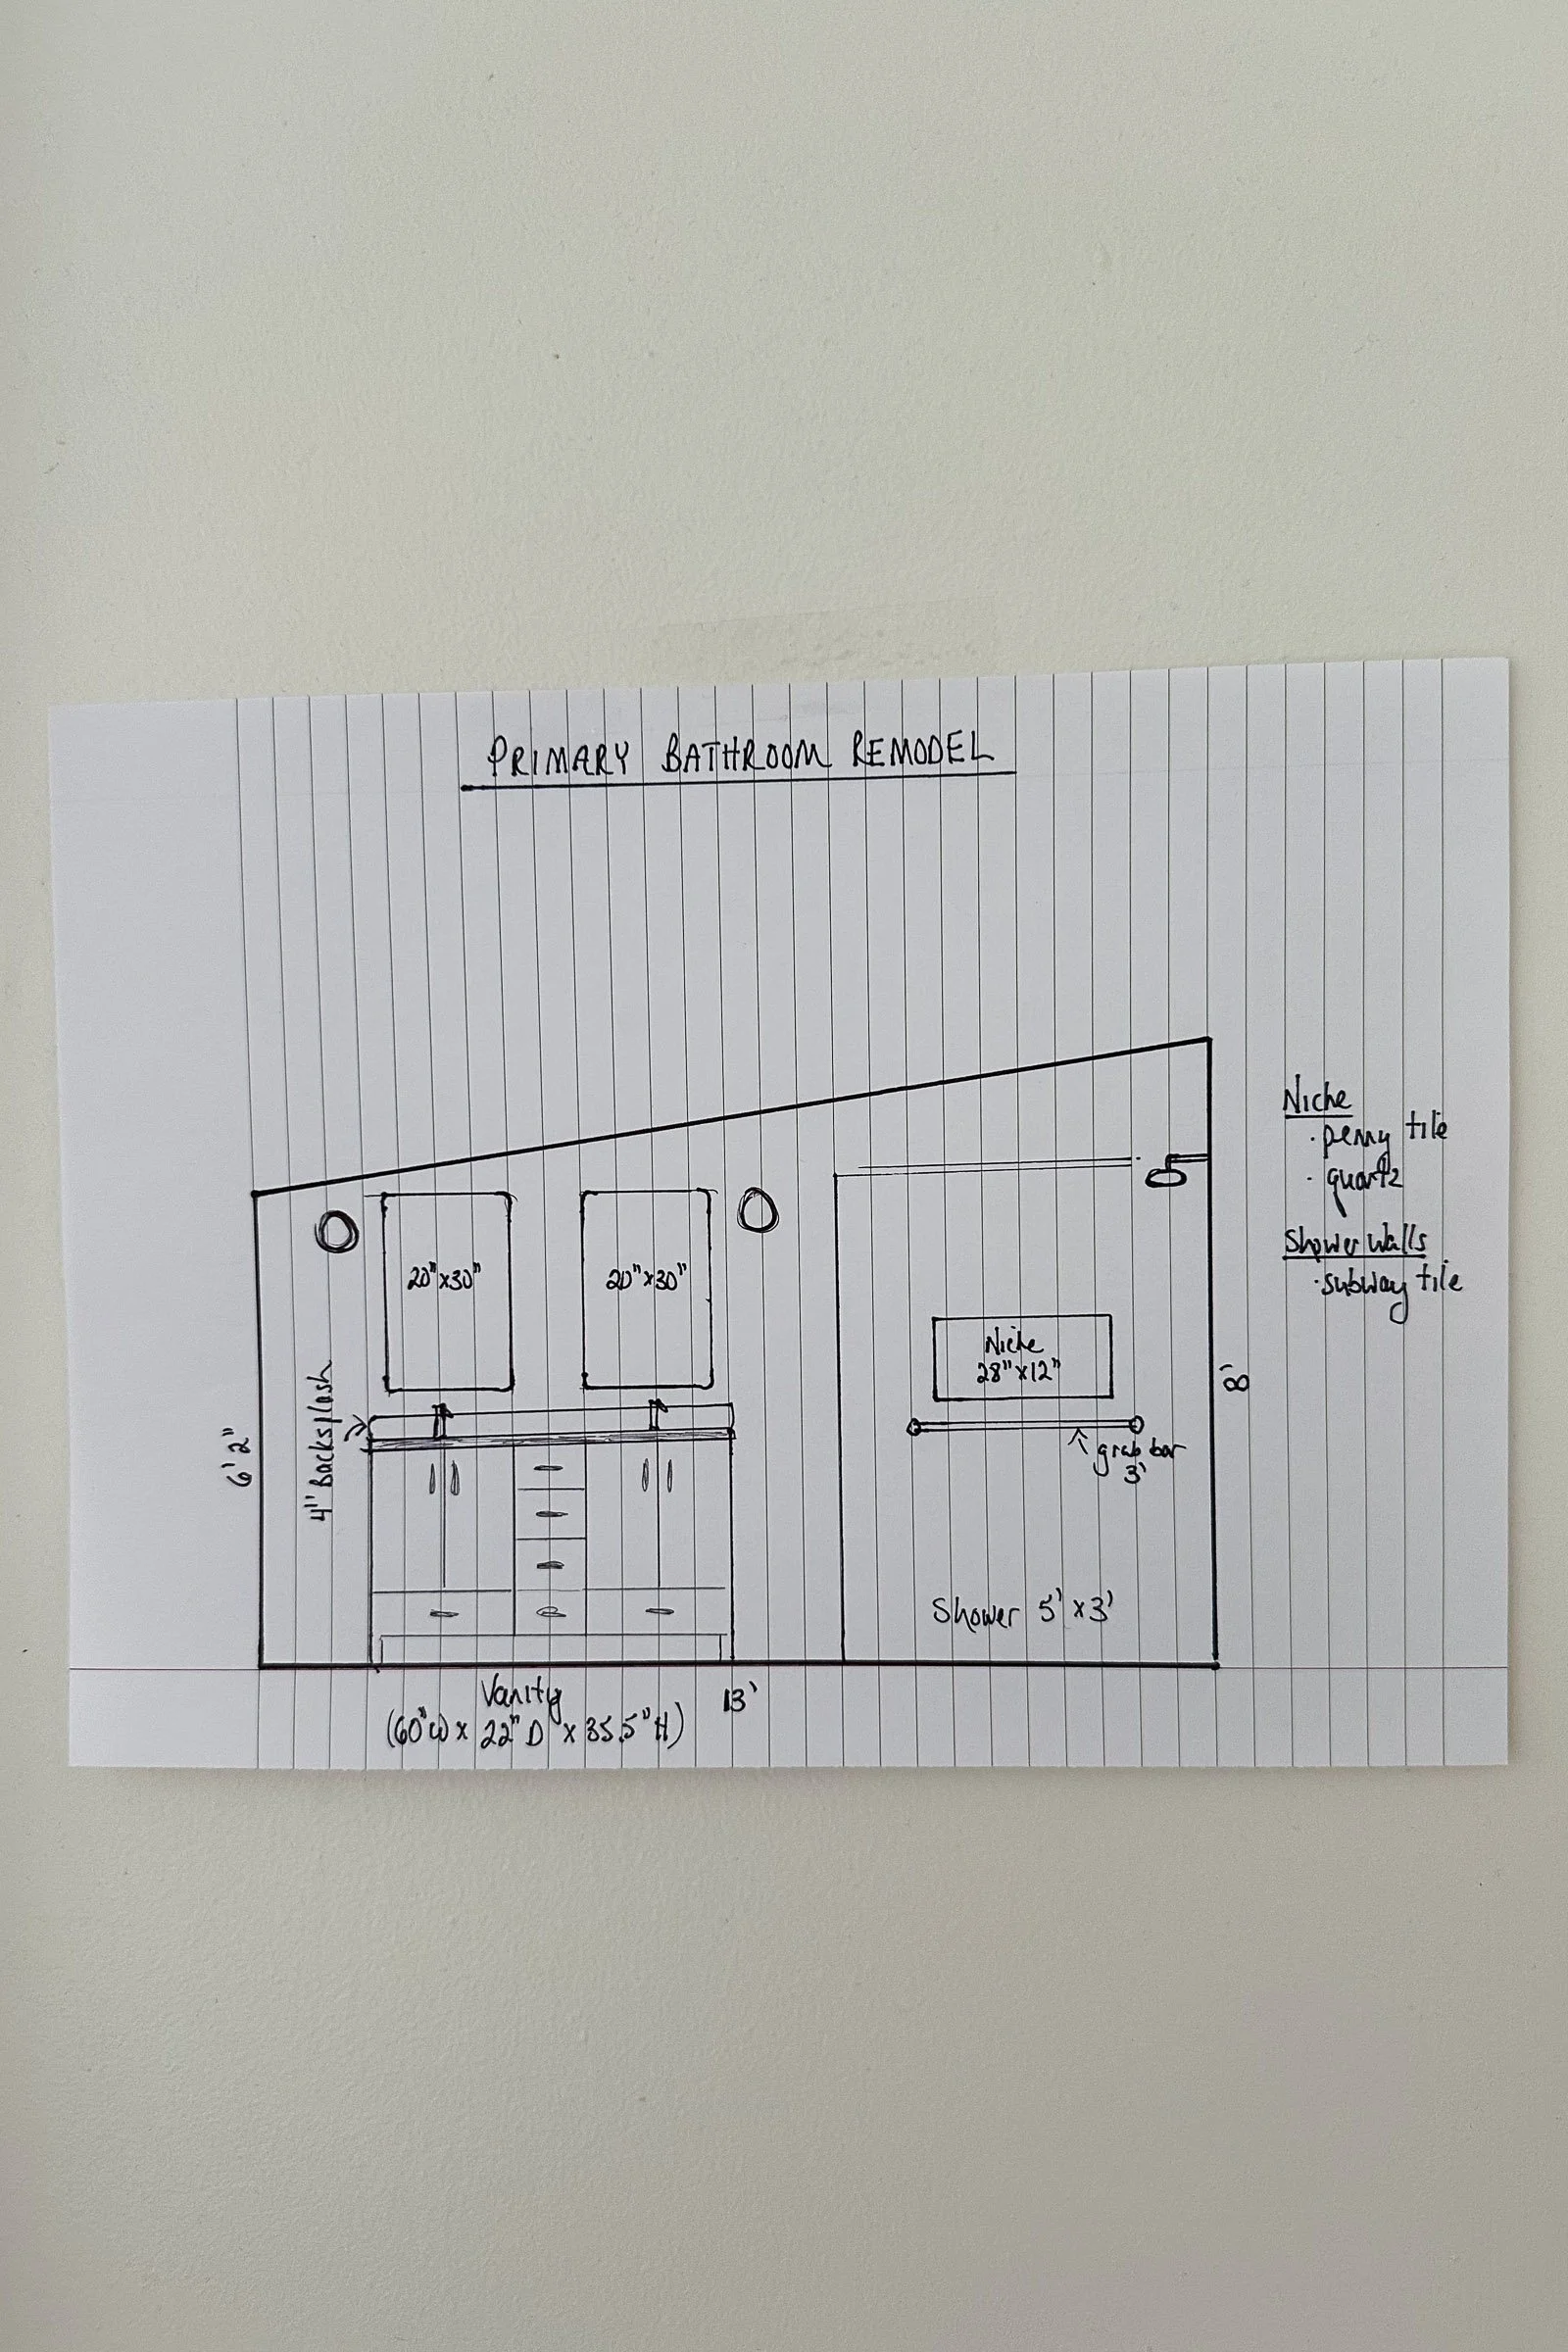 PRIMARY BATHROOM REMODEL
20"x30"
20"x30"
4" Backsplash
6' 2"
Niche
28"x12"
grab bar
3'
Shower 5' x 3'
8'
Vanity
(60"W x 22" D x 35.5" H)
13'
Niche
· penny tile
· quartz
Shower Walls
· subway tile